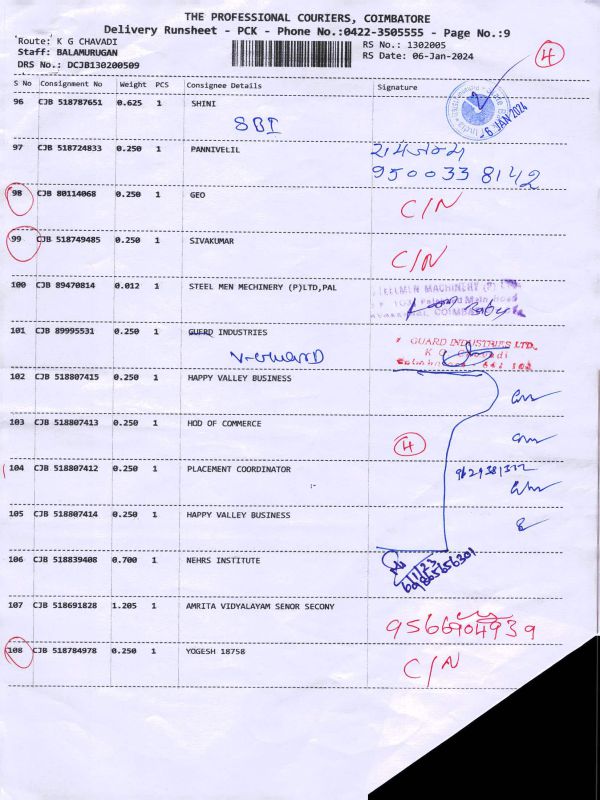 THE PROFESSIONAL COURIERS, COIMBATORE
Delivery Runsheet - PCK - Phone No.:0422-3505555 - Page No.:9
Route: K G CHAVADI
RS No.: 1302005
Staff: BALAMURUGAN
RS Date: 06-Jan-2024
DRS No.: DCJB130200509
4
S No Consignment No Weight PCS Consignee Details Signature
96 CJB 518787651 0.625 1 SHINI
SBI
6 JAN 2024
97 CJB 518724833 0.250 1 PANNIVELIL
9500338142
98 CJB 80114068 0.250 1 GEO C/N
99 CJB 518749485 0.250 1 SIVAKUMAR C/N
100 CJB 89470814 0.012 1 STEEL MEN MECHINERY (P)LTD,PAL
STEELMEN MACHINERY (P) LTD
101 CJB 89995531 0.250 1 GUERD INDUSTRIES
V-GUARD
GUARD INDUSTRIES LTD.
K G Chavadi
Coimbatore - 641 105
102 CJB 518807415 0.250 1 HAPPY VALLEY BUSINESS
103 CJB 518807413 0.250 1 HOD OF COMMERCE
4
104 CJB 518807412 0.250 1 PLACEMENT COORDINATOR
:-
105 CJB 518807414 0.250 1 HAPPY VALLEY BUSINESS
106 CJB 518839408 0.700 1 NEHRS INSTITUTE
6/1/23
107 CJB 518691828 1.205 1 AMRITA VIDYALAYAM SENOR SECONY
9566904939
108 CJB 518784978 0.250 1 YOGESH 18758 C/N